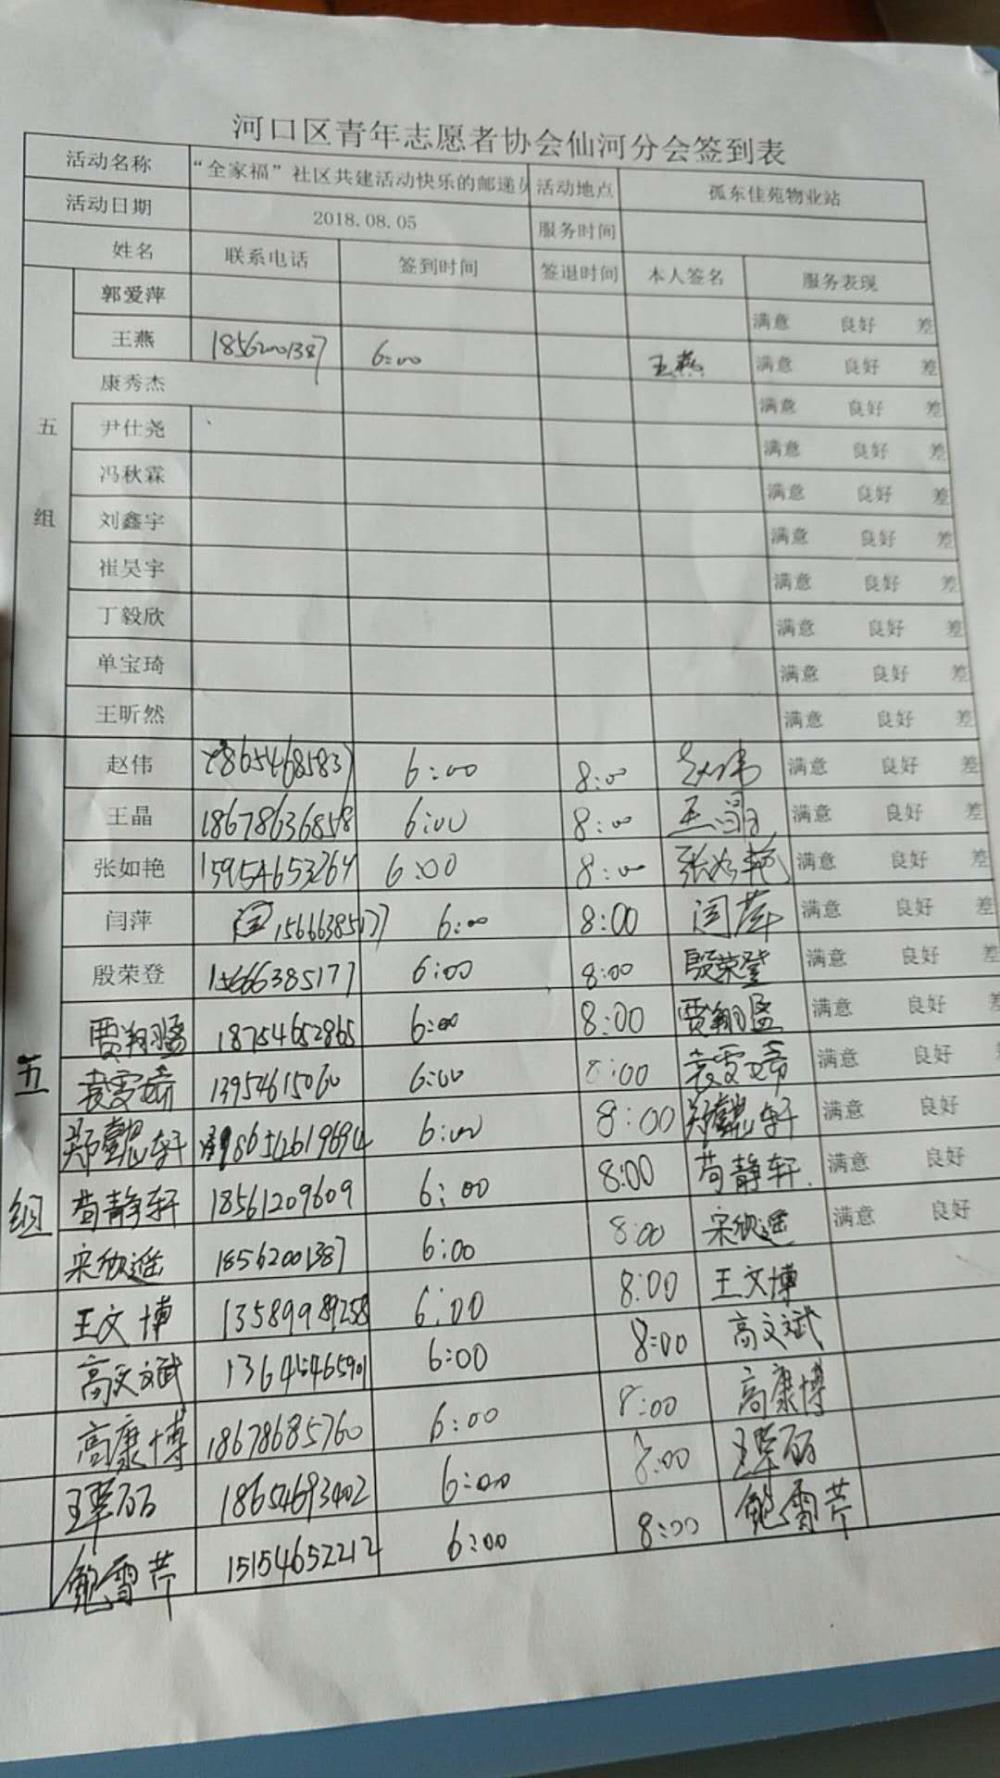 河口区青年志愿者协会仙河分会签到表
活动名称 “全家福”社区共建活动快乐的邮递员 活动地点 孤东佳苑物业站
活动日期 2018.08.05 服务时间
姓名 联系电话 签到时间 签退时间 本人签名 服务表现
五组
郭爱萍 满意 良好 差
王燕 18562001387 6:00 王燕 满意 良好 差
康秀杰 满意 良好 差
尹仕尧 满意 良好 差
冯秋霖 满意 良好 差
刘鑫宇 满意 良好 差
崔昊宇 满意 良好 差
丁毅欣 满意 良好 差
单宝琦 满意 良好 差
王昕然 满意 良好 差
五组
赵伟 6:00 8:00 赵伟 满意 良好 差
王晶 18678636858 6:00 8:00 王晶 满意 良好 差
张如艳 15954653264 6:00 8:00 张如艳 满意 良好 差
闫萍 15666385177 6:00 8:00 闫萍 满意 良好 差
殷荣登 15666385177 6:00 8:00 殷荣登 满意 良好 差
贾翔盛 18754652865 6:00 8:00 贾翔盛 满意 良好 差
袁雯婷 13954615060 6:00 8:00 袁雯婷 满意 良好
郑懿轩 6:00 8:00 郑懿轩 满意 良好
荀静轩 18561209609 6:00 8:00 荀静轩 满意 良好
宋欣遥 18562001387 6:00 8:00 宋欣遥 满意 良好
王文博 13589989258 6:00 8:00 王文博
高文斌 13645465901 6:00 8:00 高文斌
高康博 18678685760 6:00 8:00 高康博
18654693402 6:00 8:00
鲍雪芹 15154652212 6:00 8:00 鲍雪芹